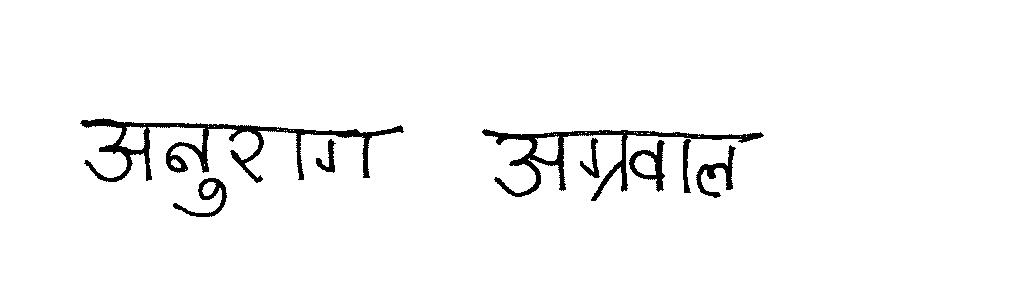 अनुराग अग्रवाल